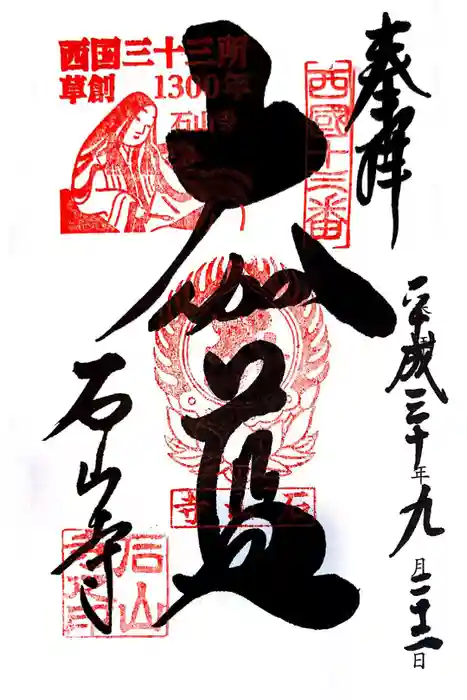 奉拝
平成三十年九月二十一日
西國十三番
大伽藍
西国三十三所
草創 1300年
石山寺
石山寺
石山寺
石山寺之印